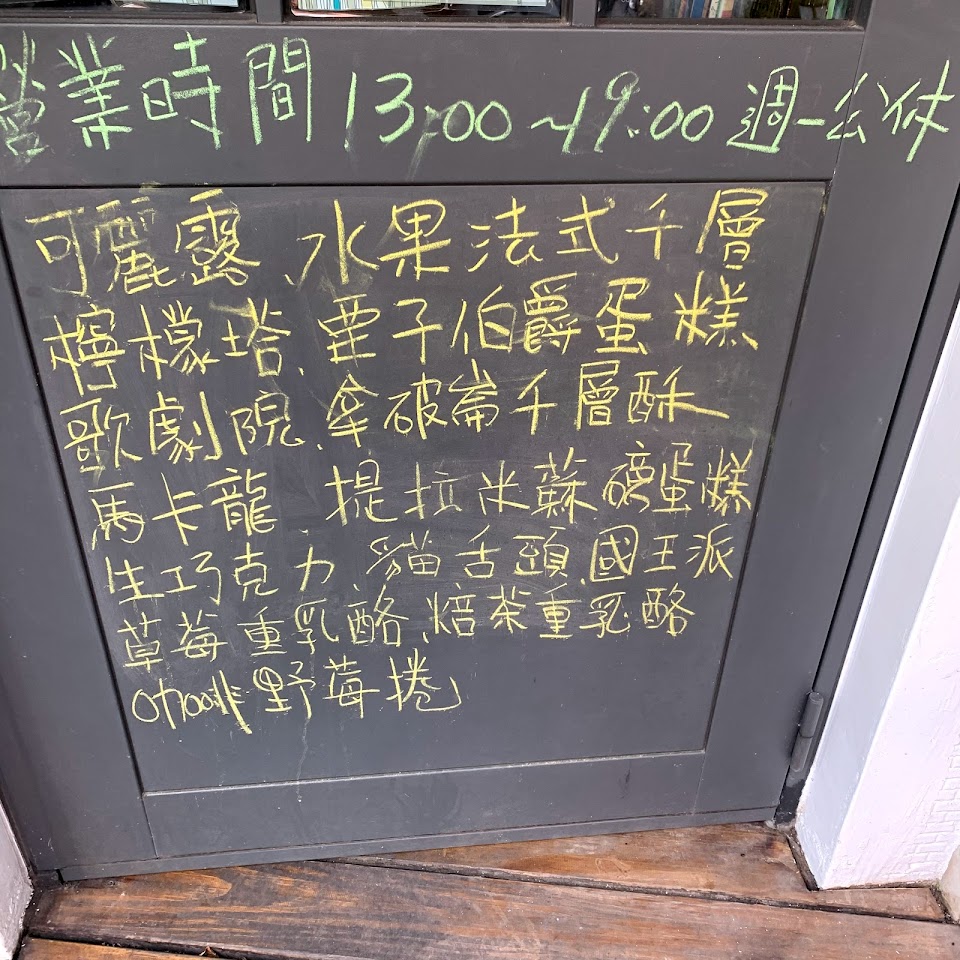 營業時間 13:00~19:00 週一公休
可麗露、水果法式千層
檸檬塔、栗子伯爵蛋糕
歌劇院、拿破崙千層酥
馬卡龍、提拉米蘇、蛋糕
生巧克力、貓舌頭、國王派
草莓重乳酪、焙茶重乳酪
野莓捲